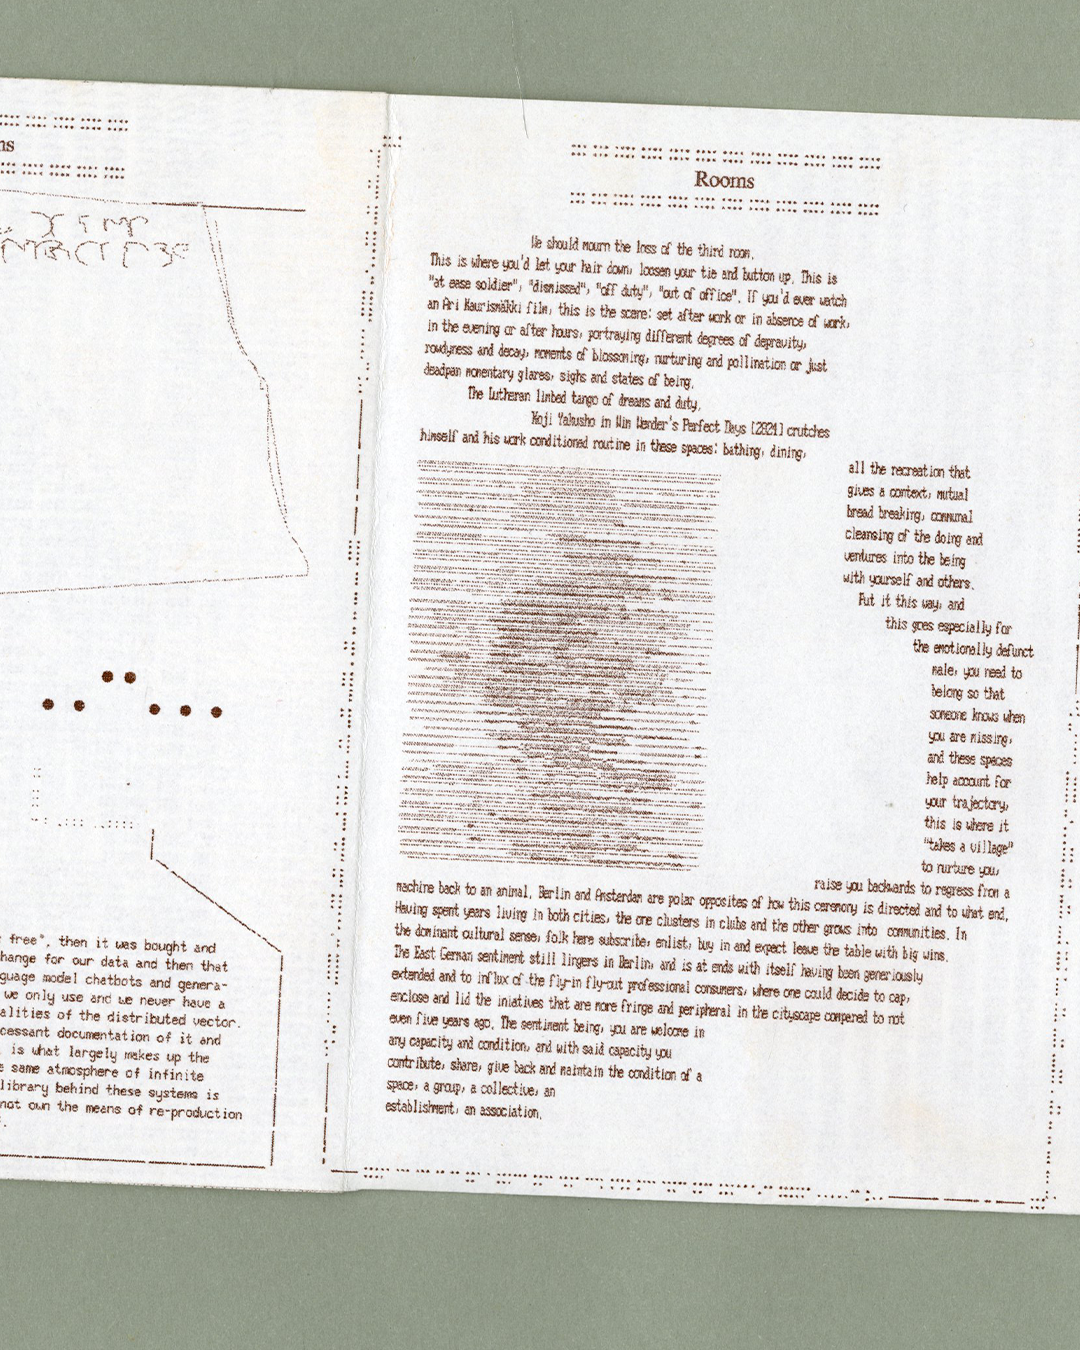 ms
free", then it was bought and
change for our data and then that
guage model chatbots and genera-
we only use and we never have a
alities of the distributed vector.
cessant documentation of it and
is what largely makes up the
same atmosphere of infinite
library behind these systems is
not own the means of re-production
Rooms
We should mourn the loss of the third room.
This is where you'd let your hair down, loosen your tie and button up. This is
"at ease soldier", "dismissed", "off duty", "out of office". If you'd ever watch
an Ari Kaurismäkki film, this is the scene: set after work or in absence of work,
in the evening or after hours, portraying different degrees of depravity,
rowdyness and decay, moments of blossoming, nurturing and pollination or just
deadpan momentary glares, sighs and states of being.
The Lutheran limbed tango of dreams and duty.
Koji Yakusho in Wim Wender's Perfect Days [2021] crutches
himself and his work conditioned routine in these spaces: bathing, dining,
all the recreation that
gives a context, mutual
bread breaking, communal
cleansing of the doing and
ventures into the being
with yourself and others.
Put it this way, and
this goes especially for
the emotionally defunct
male, you need to
belong so that
someone knows when
you are missing,
and these spaces
help account for
your trajectory,
this is where it
"takes a village"
to nurture you,
raise you backwards to regress from a
machine back to an animal. Berlin and Amsterdam are polar opposites of how this ceremony is directed and to what end.
Having spent years living in both cities, the one clusters in clubs and the other grows into communities. In
the dominant cultural sense, folk here subscribe, enlist, buy in and expect leave the table with big wins.
The East German sentiment still lingers in Berlin, and is at ends with itself having been generiously
extended and to influx of the fly-in fly-out professional consumers, where one could decide to cap,
enclose and lid the iniatives that are more fringe and peripheral in the cityscape compered to not
even five years ago. The sentiment being, you are welcome in
any capacity and condition, and with said capacity you
contribute, share, give back and maintain the condition of a
space, a group, a collective, an
establishment, an association.